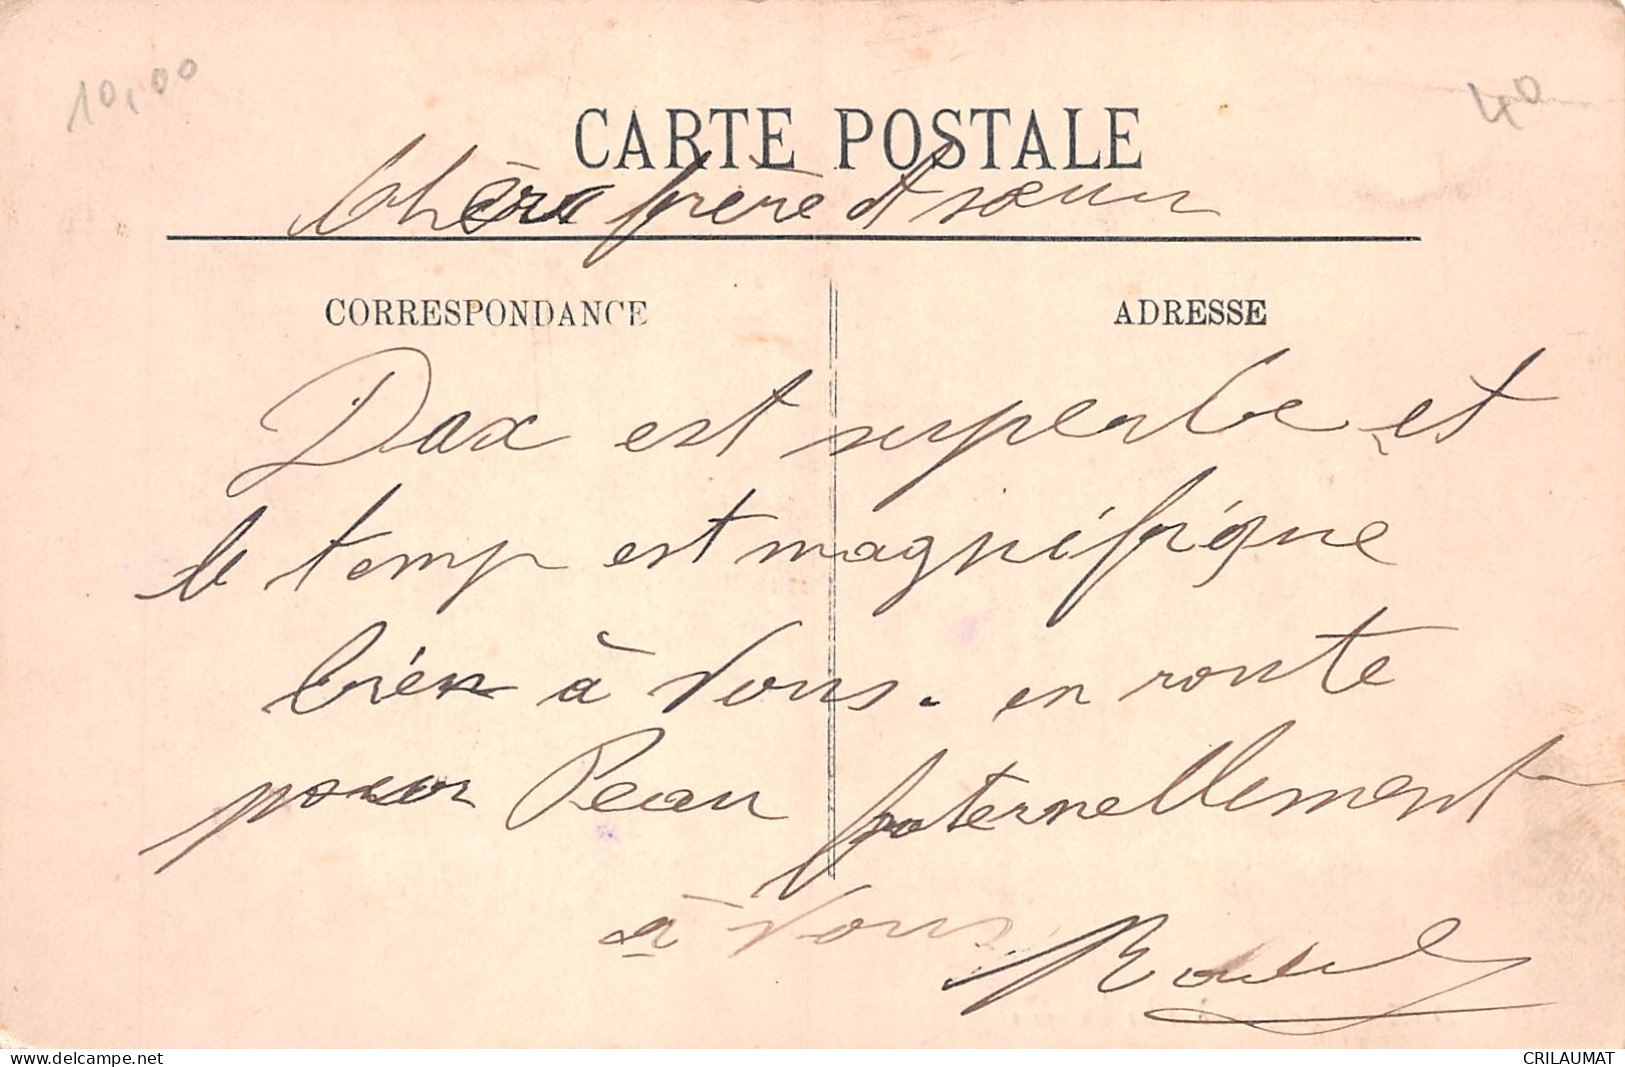 10,00
40
CARTE POSTALE
Chère frère et sœur
CORRESPONDANCE
ADRESSE
Dax est superbe et
le temp est magnifique
bien à Vous. en route
pour Peau fraternellement
à Vous
delcampe.net
CRILAUMAT